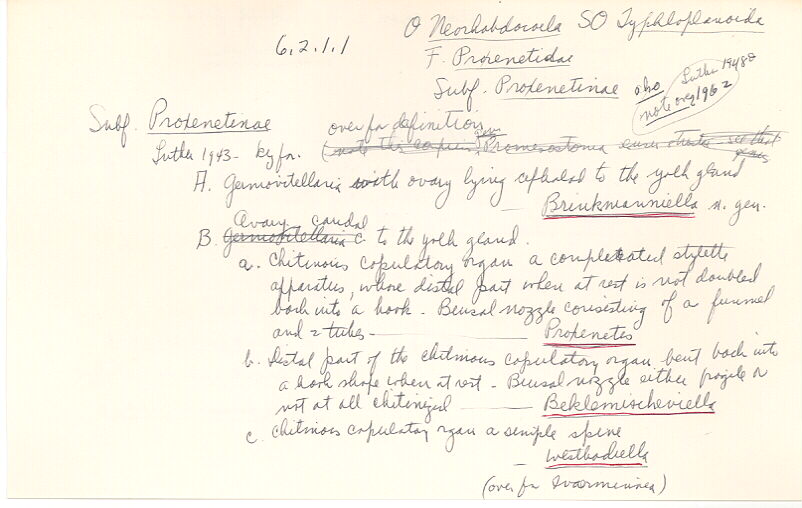 O Neorhabdocoela SO Typhloplanoida
6.2.1.1
F. Proxenetidae
Subf. Proxenetinae
also Luther 1948
note over 1962
Subf. Proxenetinae over for definition
Luther 1943 - key for. (note this copies Promesostoma see that genus
A. Germovitellaria with ovary lying cephalad to the yolk gland
Brinkmanniella n. gen.
Ovary caudal
B. Germovitellaria c to the yolk gland.
a. Chitinous copulatory organ a complicated stylette
apparatus, whose distal part when at rest is not doubled
back into a hook - Bursal nozzle consisting of a funnel
and 2 tubes - Proxenetes
b. Distal part of the chitinous copulatory organ bent back into
a hook shape when at rest - Bursal nozzle either fragile or
not at all chitinized Beklemischeviella
c. Chitinous copulatory organ a simple spine
- Westbladiella
(over for Tvaerminnea)